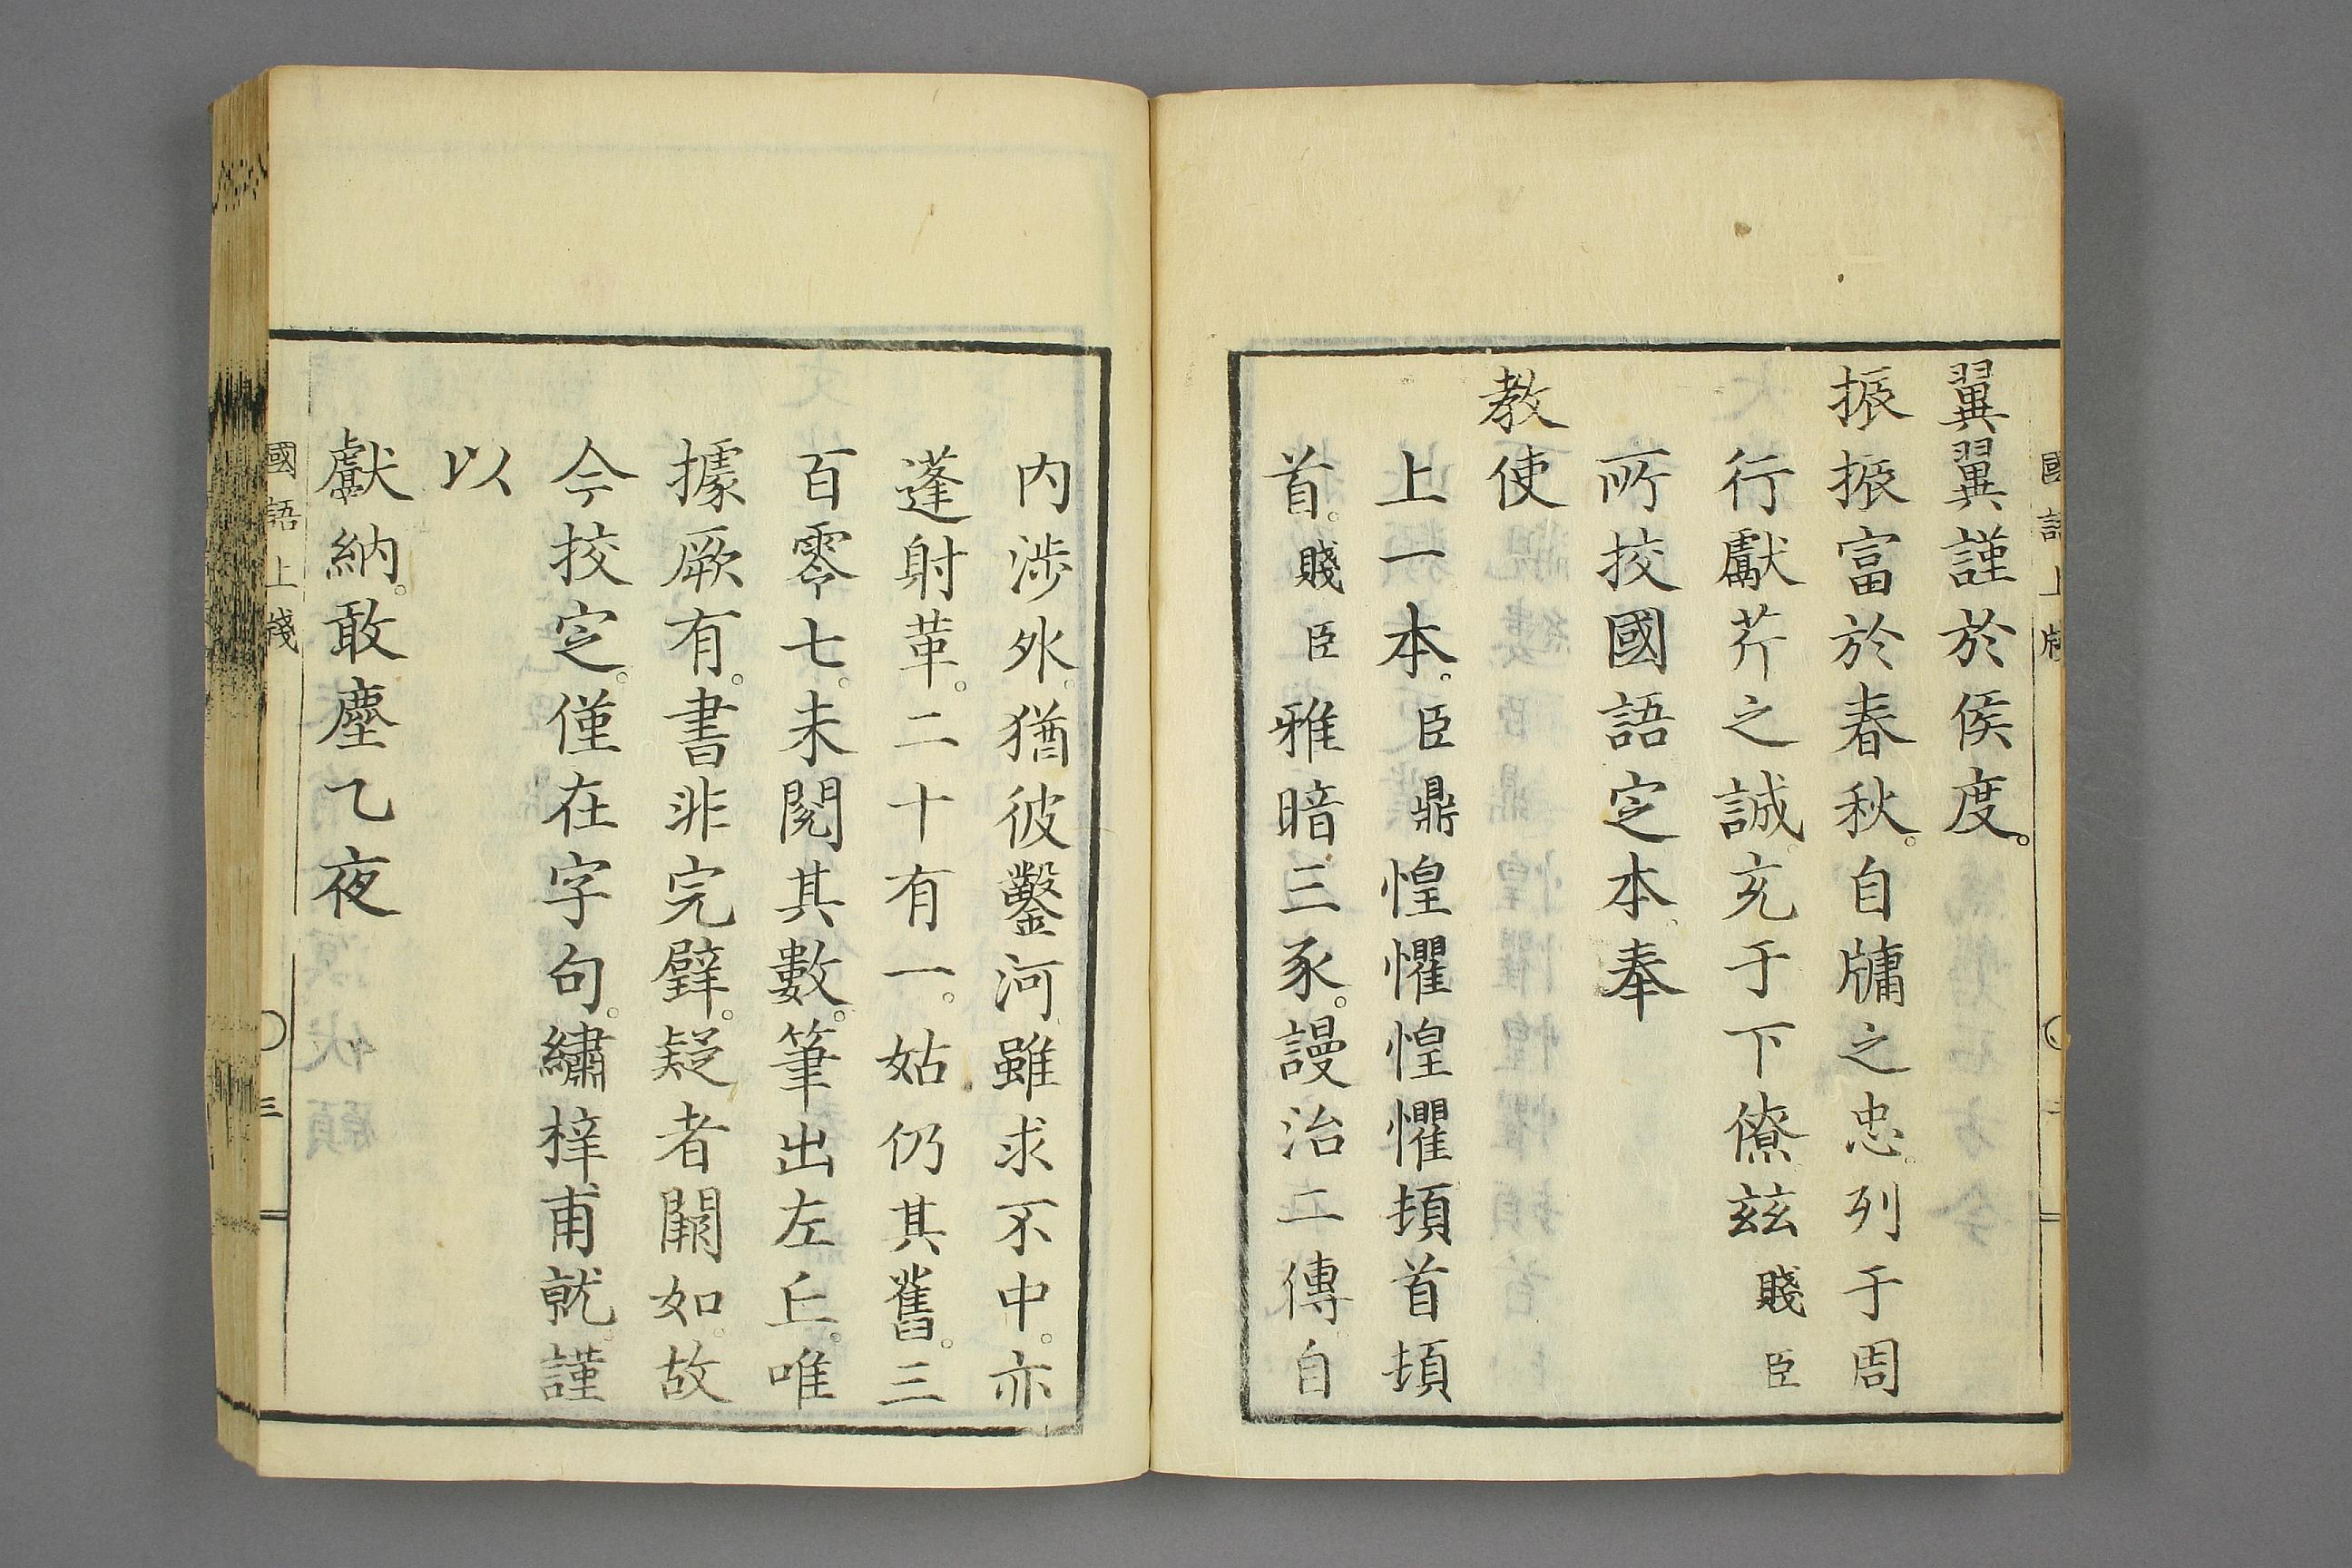 翼翼謹於侯度。
振振富於春秋。自牗之忠。列于周
行獻芹之誠。充于下僚兹賤臣
所挍國語定本。奉
教使
上一本。臣鼎惶懼惶懼頓首頓
首。賤臣雅暗三豕。謾治二傳自
内涉外。猶彼鑿河雖求不中。亦
蓬射革。二十有一。姑仍其舊。三
百零七。未閱其數。筆出左丘。唯
據厥有。書非完璧。疑者闕如。故
今挍定。僅在字句。繡梓甫就。謹
以
獻納。敢塵乙夜
國語上牋
三